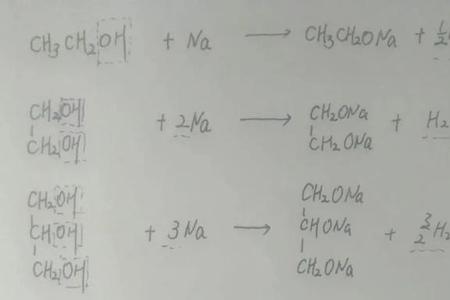 CH₃CH₂OH + Na → CH₃CH₂ONa + ½
CH₂OH
CH₂OH
+ 2Na →
CH₂ONa
CH₂ONa
+ H₂
CH₂OH
CHOH
CH₂OH
+ 3Na →
CH₂ONa
CHONa
CH₂ONa
+ 3/2 H₂